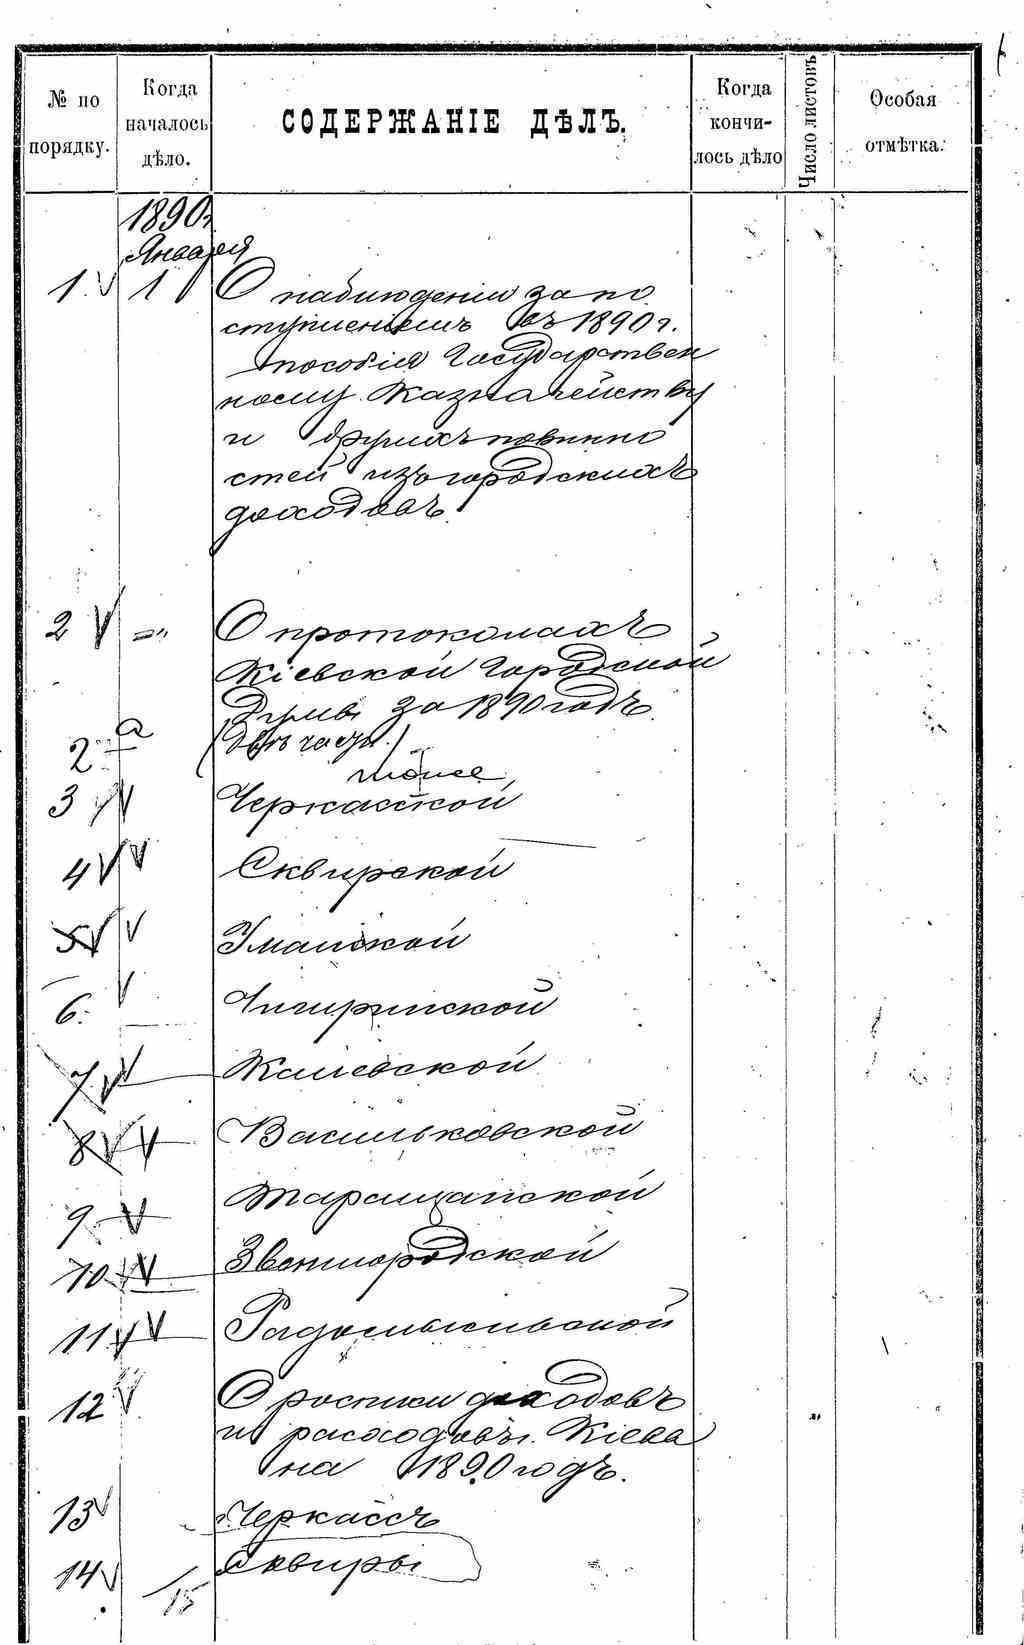 № по порядку.
Когда началось дѣло.
СОДЕРЖАНІЕ ДѢЛЪ.
Когда кончилось дѣло
Число листовъ
Особая отмѣтка.
1890г.
Января
1. V 1 О наблюденіи за по
ступленіемъ въ 1890 г.
пособія Государствен
ному Казначейству
и другихъ повинно
стей изъ городскихъ
доходовъ.
2 V =„ О протоколахъ
Кіевской Городской
Думы за 1890 годъ
2 а (двѣ части.)
тоже
3 V Черкасской
4 V V Сквирской
5 V V Уманской
6. V Чигиринской
7 V V Каневской
8 V V Васильковской
9 V Таращанской
10 V V Звенигородской
11 V V Радомысльской
12 V О росписи доходовъ
и расходовъ г. Кіева
на 1890 годъ.
13 V Черкассъ
14 V Сквиры
15